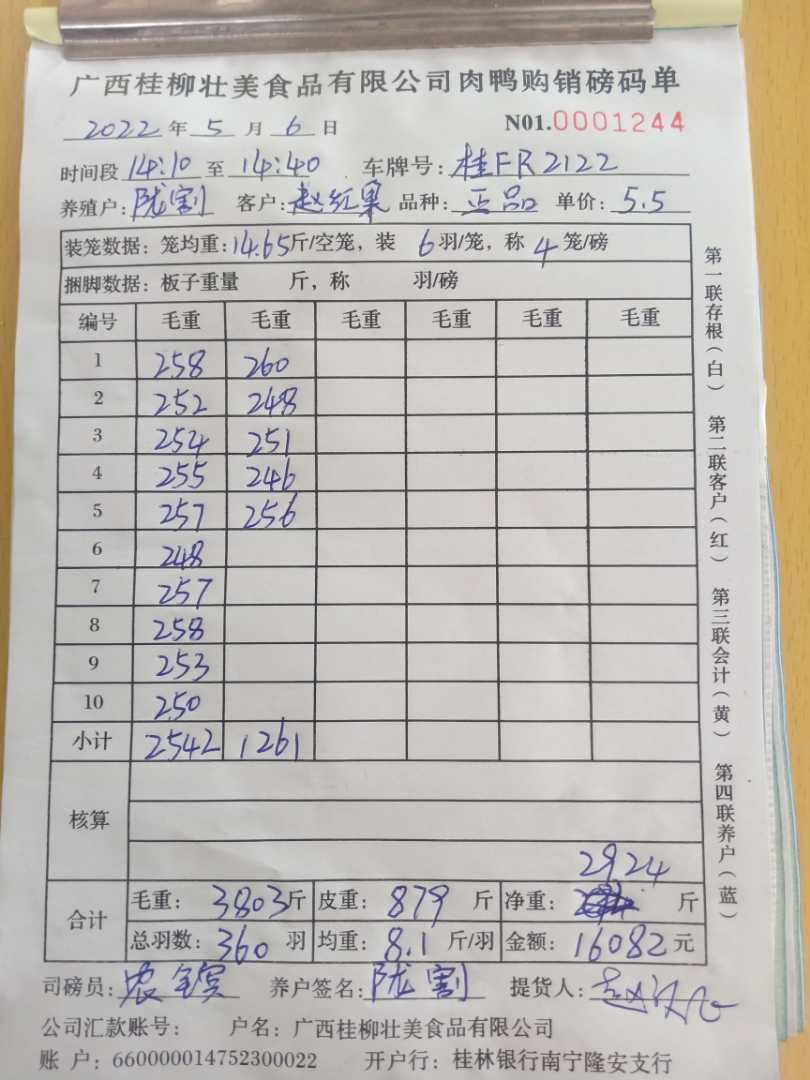 广西桂柳壮美食品有限公司肉鸭购销磅码单
2022年5月6日 N01.0001244
时间段14:10至14:40 车牌号:桂FR2122
养殖户:陇割 客户:赵红果 品种:正品 单价:5.5
装笼数据:笼均重:14.65斤/空笼,装 6羽/笼,称 4笼/磅
捆脚数据:板子重量 斤,称 羽/磅
编号 毛重 毛重 毛重 毛重 毛重 毛重
1 258 260
2 252 248
3 254 251
4 255 246
5 257 256
6 248
7 257
8 258
9 253
10 250
小计 2542 1261
核算
2924
合计 毛重:3803斤 皮重:879斤 净重: 斤
总羽数:360羽 均重:8.1斤/羽 金额:16082元
司磅员:农 养户签名:陇割 提货人:
公司汇款账号: 户名:广西桂柳壮美食品有限公司
账 户:660000014752300022 开户行:桂林银行南宁隆安支行
第一联存根(白) 第二联客户(红) 第三联会计(黄) 第四联养户(蓝)